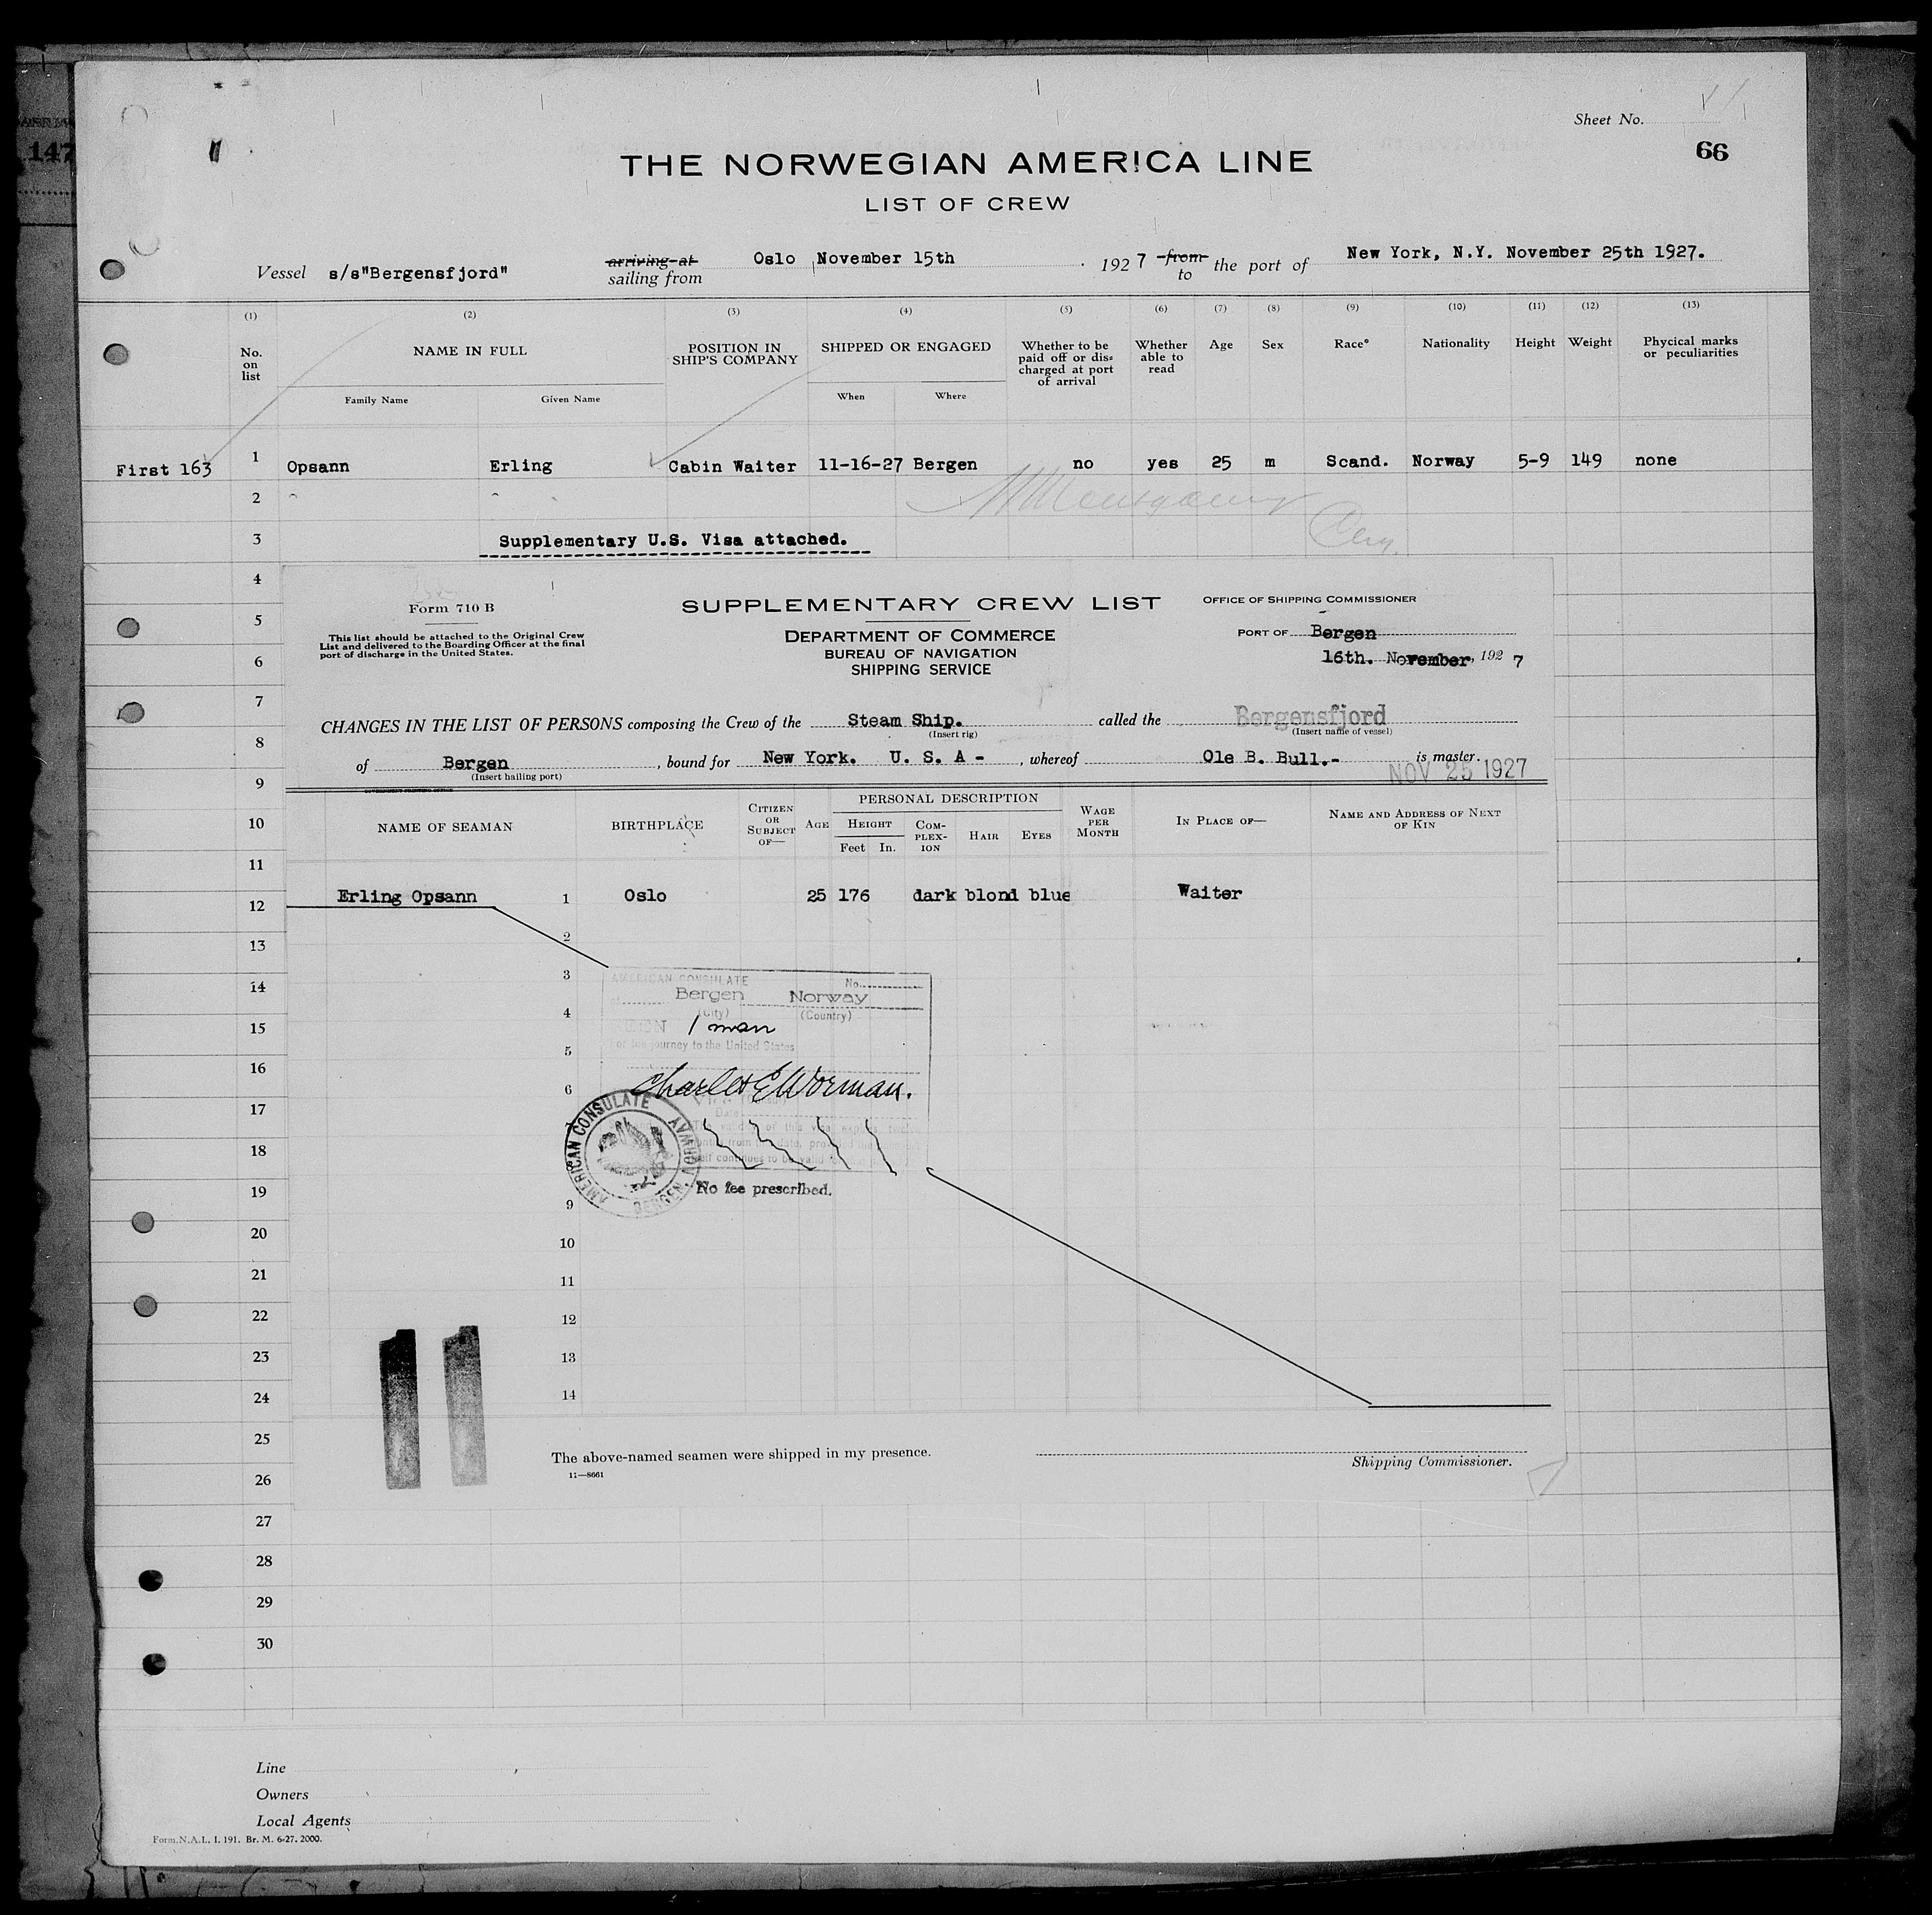 147
Sheet No.
66
THE NORWEGIAN AMERICA LINE
LIST OF CREW
Vessel s/s"Bergensfjord" arriving at sailing from Oslo November 15th 1927 from to the port of New York, N.Y. November 25th 1927.
(1) (2) (3) (4) (5) (6) (7) (8) (9) (10) (11) (12) (13)
No. on list NAME IN FULL POSITION IN SHIP'S COMPANY SHIPPED OR ENGAGED Whether to be paid off or dis= charged at port of arrival Whether able to read Age Sex Race* Nationality Height Weight Phycical marks or peculiarities
Family Name Given Name When Where
First 163 1 Opsann Erling Cabin Waiter 11-16-27 Bergen no yes 25 m Scand. Norway 5-9 149 none
2
3 Supplementary U.S. Visa attached.
4
5
6
7
8
9
10
11
12
13
14
15
16
17
18
19
20
21
22
23
24
25
26
27
28
29
30
Form 710 B
This list should be attached to the Original Crew
List and delivered to the Boarding Officer at the final
port of discharge in the United States.
SUPPLEMENTARY CREW LIST
DEPARTMENT OF COMMERCE
BUREAU OF NAVIGATION
SHIPPING SERVICE
OFFICE OF SHIPPING COMMISSIONER
PORT OF Bergen
16th. November, 1927
CHANGES IN THE LIST OF PERSONS composing the Crew of the Steam Ship. called the Bergensfjord
(Insert rig) (Insert name of vessel)
of Bergen, bound for New York. U. S. A -, whereof Ole B. Bull.- is master.
(Insert hailing port)
NOV 25 1927
NAME OF SEAMAN BIRTHPLACE CITIZEN OR SUBJECT OF— AGE PERSONAL DESCRIPTION WAGE PER MONTH IN PLACE OF— NAME AND ADDRESS OF NEXT OF KIN
HEIGHT COM- PLEX- ION HAIR EYES
Feet In.
Erling Opsann 1 Oslo 25 176 dark blond blue Waiter
2
3
4
5
6
9
10
11
12
13
14
AMERICAN CONSULATE No.
Bergen Norway
(City) (Country)
1 man
For the journey to the United States
Charles E Worman.
AMERICAN CONSULATE
BERGEN, NORWAY
No fee prescribed.
The above-named seamen were shipped in my presence.
11—8661
Shipping Commissioner.
Line
Owners
Local Agents
Form.N.A.L. I. 191. Br. M. 6-27. 2000.